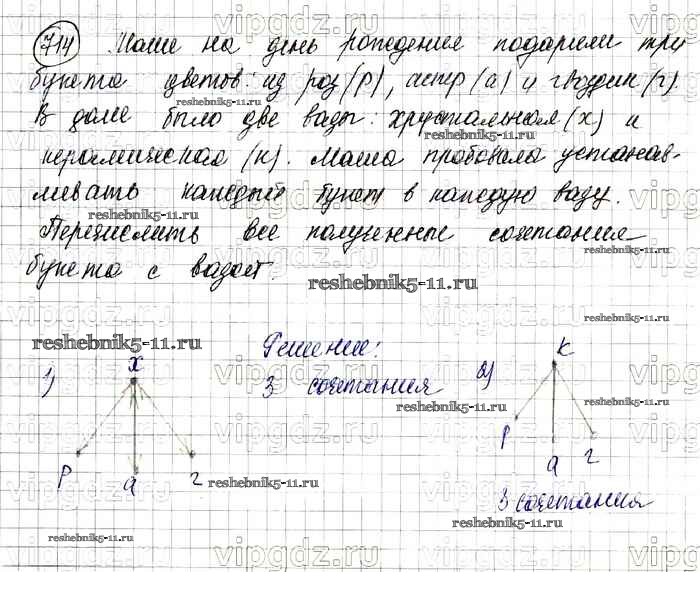 714 Маше на день рождение подарили три
букета цветов: из роз (р), астр (а) и гвоздик (г).
В доме было две вазы: хрустальная (х) и
керамическая (к). Маша пробовала устанав-
ливать каждый букет в каждую вазу.
Перечислить все полученные сочетания
букета с вазой.
Решение:
1) х
3 сочетания
2) к
р а г
р а г
3 сочетания
vipgdz.ru
reshebnik5-11.ru